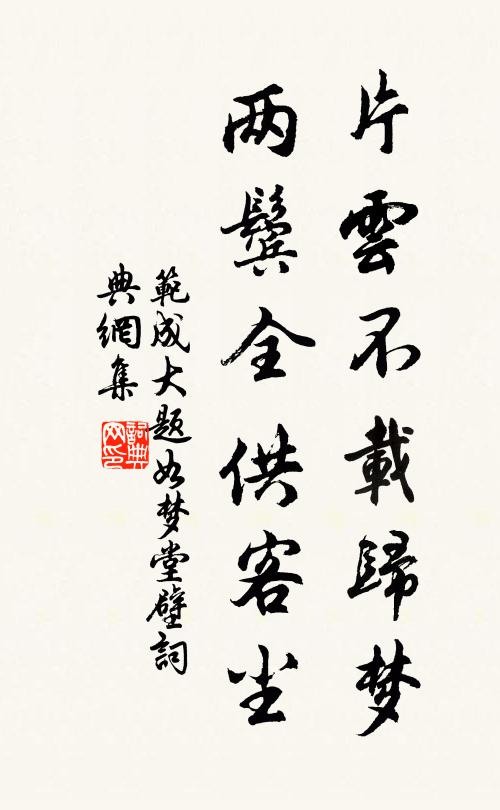 片雲不載歸梦
两鬓全供客尘
範成大题如梦堂壁詞
典網集
詞典
网印